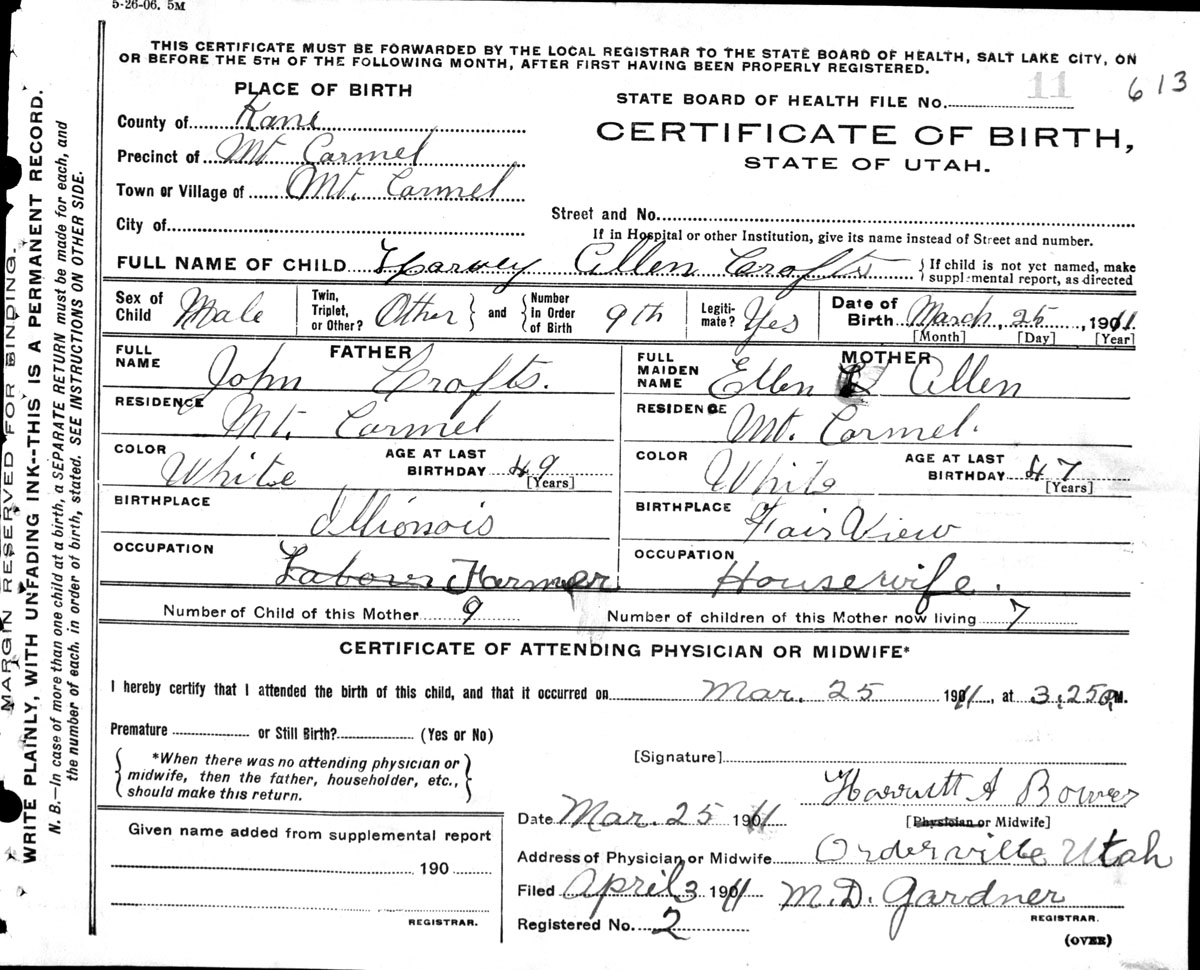 5-26-06. 5M
THIS CERTIFICATE MUST BE FORWARDED BY THE LOCAL REGISTRAR TO THE STATE BOARD OF HEALTH, SALT LAKE CITY, ON
OR BEFORE THE 5TH OF THE FOLLOWING MONTH, AFTER FIRST HAVING BEEN PROPERLY REGISTERED.
11 613
PLACE OF BIRTH
STATE BOARD OF HEALTH FILE No.
County of Kane
CERTIFICATE OF BIRTH,
Precinct of Mt Carmel
STATE OF UTAH.
Town or Village of Mt. Carmel
Street and No.
City of
If in Hospital or other Institution, give its name instead of Street and number.
FULL NAME OF CHILD Harvey Allen Crofts { If child is not yet named, make
supplemental report, as directed
Sex of Child Male Twin, Triplet, or Other? Other } and { Number in Order of Birth 9th Legitimate? Yes Date of Birth March, 25, 1911
[Month] [Day] [Year]
FATHER
FULL NAME John Crofts.
RESIDENCE Mt. Carmel
COLOR White AGE AT LAST BIRTHDAY 49
[Years]
BIRTHPLACE Illionois
OCCUPATION Labour Farmer
MOTHER
FULL MAIDEN NAME Ellen Allen
RESIDENCE Mt. Carmel.
COLOR White AGE AT LAST BIRTHDAY 47
[Years]
BIRTHPLACE Fair View
OCCUPATION Housewife.
Number of Child of this Mother 9 Number of children of this Mother now living 7
CERTIFICATE OF ATTENDING PHYSICIAN OR MIDWIFE*
I hereby certify that I attended the birth of this child, and that it occurred on Mar. 25 1911, at 3,25 P.M.
Premature or Still Birth? (Yes or No)
{ *When there was no attending physician or
midwife, then the father, householder, etc.,
should make this return. }
[Signature]
Harriett A Bower
Date Mar. 25 1911 [Physician or Midwife]
Given name added from supplemental report
190
REGISTRAR.
Address of Physician or Midwife Orderville Utah
Filed April 3 1911 M.D. Gardner
REGISTRAR.
Registered No. 2
(OVER)
MARGIN RESERVED FOR BINDING.
WRITE PLAINLY, WITH UNFADING INK--THIS IS A PERMANENT RECORD.
N. B.—In case of more than one child at a birth, a SEPARATE RETURN must be made for each, and
the number of each, in order of birth, stated. SEE INSTRUCTIONS ON OTHER SIDE.